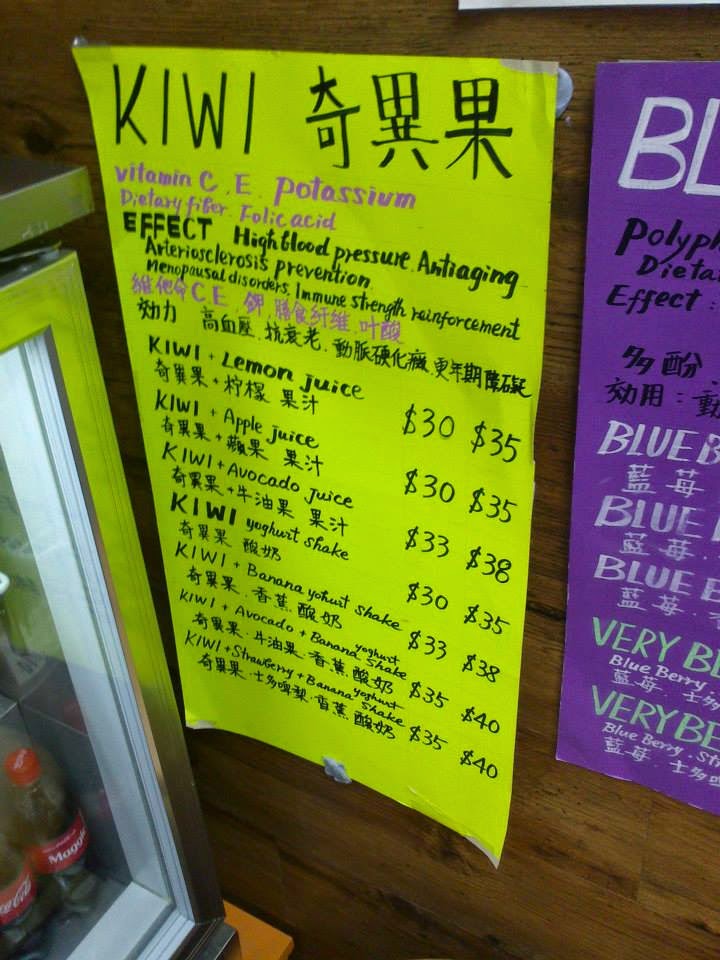 KIWI 奇異果
vitamin C . E . Potassium
Dietary fiber . Folic acid
EFFECT High blood pressure . Antiaging
Arteriosclerosis prevention
Menopausal disorders . Immune strength reinforcement
維他命C.E 鉀.膳食纤维.叶酸
効力 高血壓.抗衰老.動脈硬化癥.更年期障礙
KIWI + Lemon juice
奇異果+柠檬 果汁 $30 $35
KIWI + Apple juice
奇異果+蘋果 果汁 $30 $35
KIWI + Avocado juice
奇異果+牛油果 果汁 $33 $38
KIWI yoghurt Shake
奇異果 酸奶 $30 $35
KIWI + Banana yohurt Shake
奇異果.香蕉 酸奶 $33 $38
KIWI + Avocado + Banana yoghurt Shake
奇異果.牛油果.香蕉 酸奶 $35 $40
KIWI + Strawberry + Banana yoghurt Shake
奇異果.士多啤梨.香蕉 酸奶 $35 $40
BL
Polyph
Dieta
Effect :
多酚
効用：動
BLUE B
藍莓
BLUE
藍莓
BLUE B
藍莓
VERY BL
Blue Berry .
藍莓.士多
VERY BE
Blue Berry . Str
藍莓.士多啤
Coca